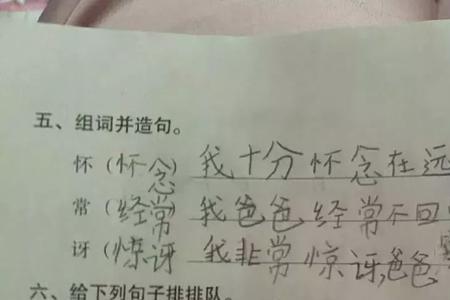 五、组词并造句。
怀（怀念）我十分怀念在远
常（经常）我爸爸经常不回
讶（惊讶）我非常惊讶,爸爸
六、给下列句子排排队。